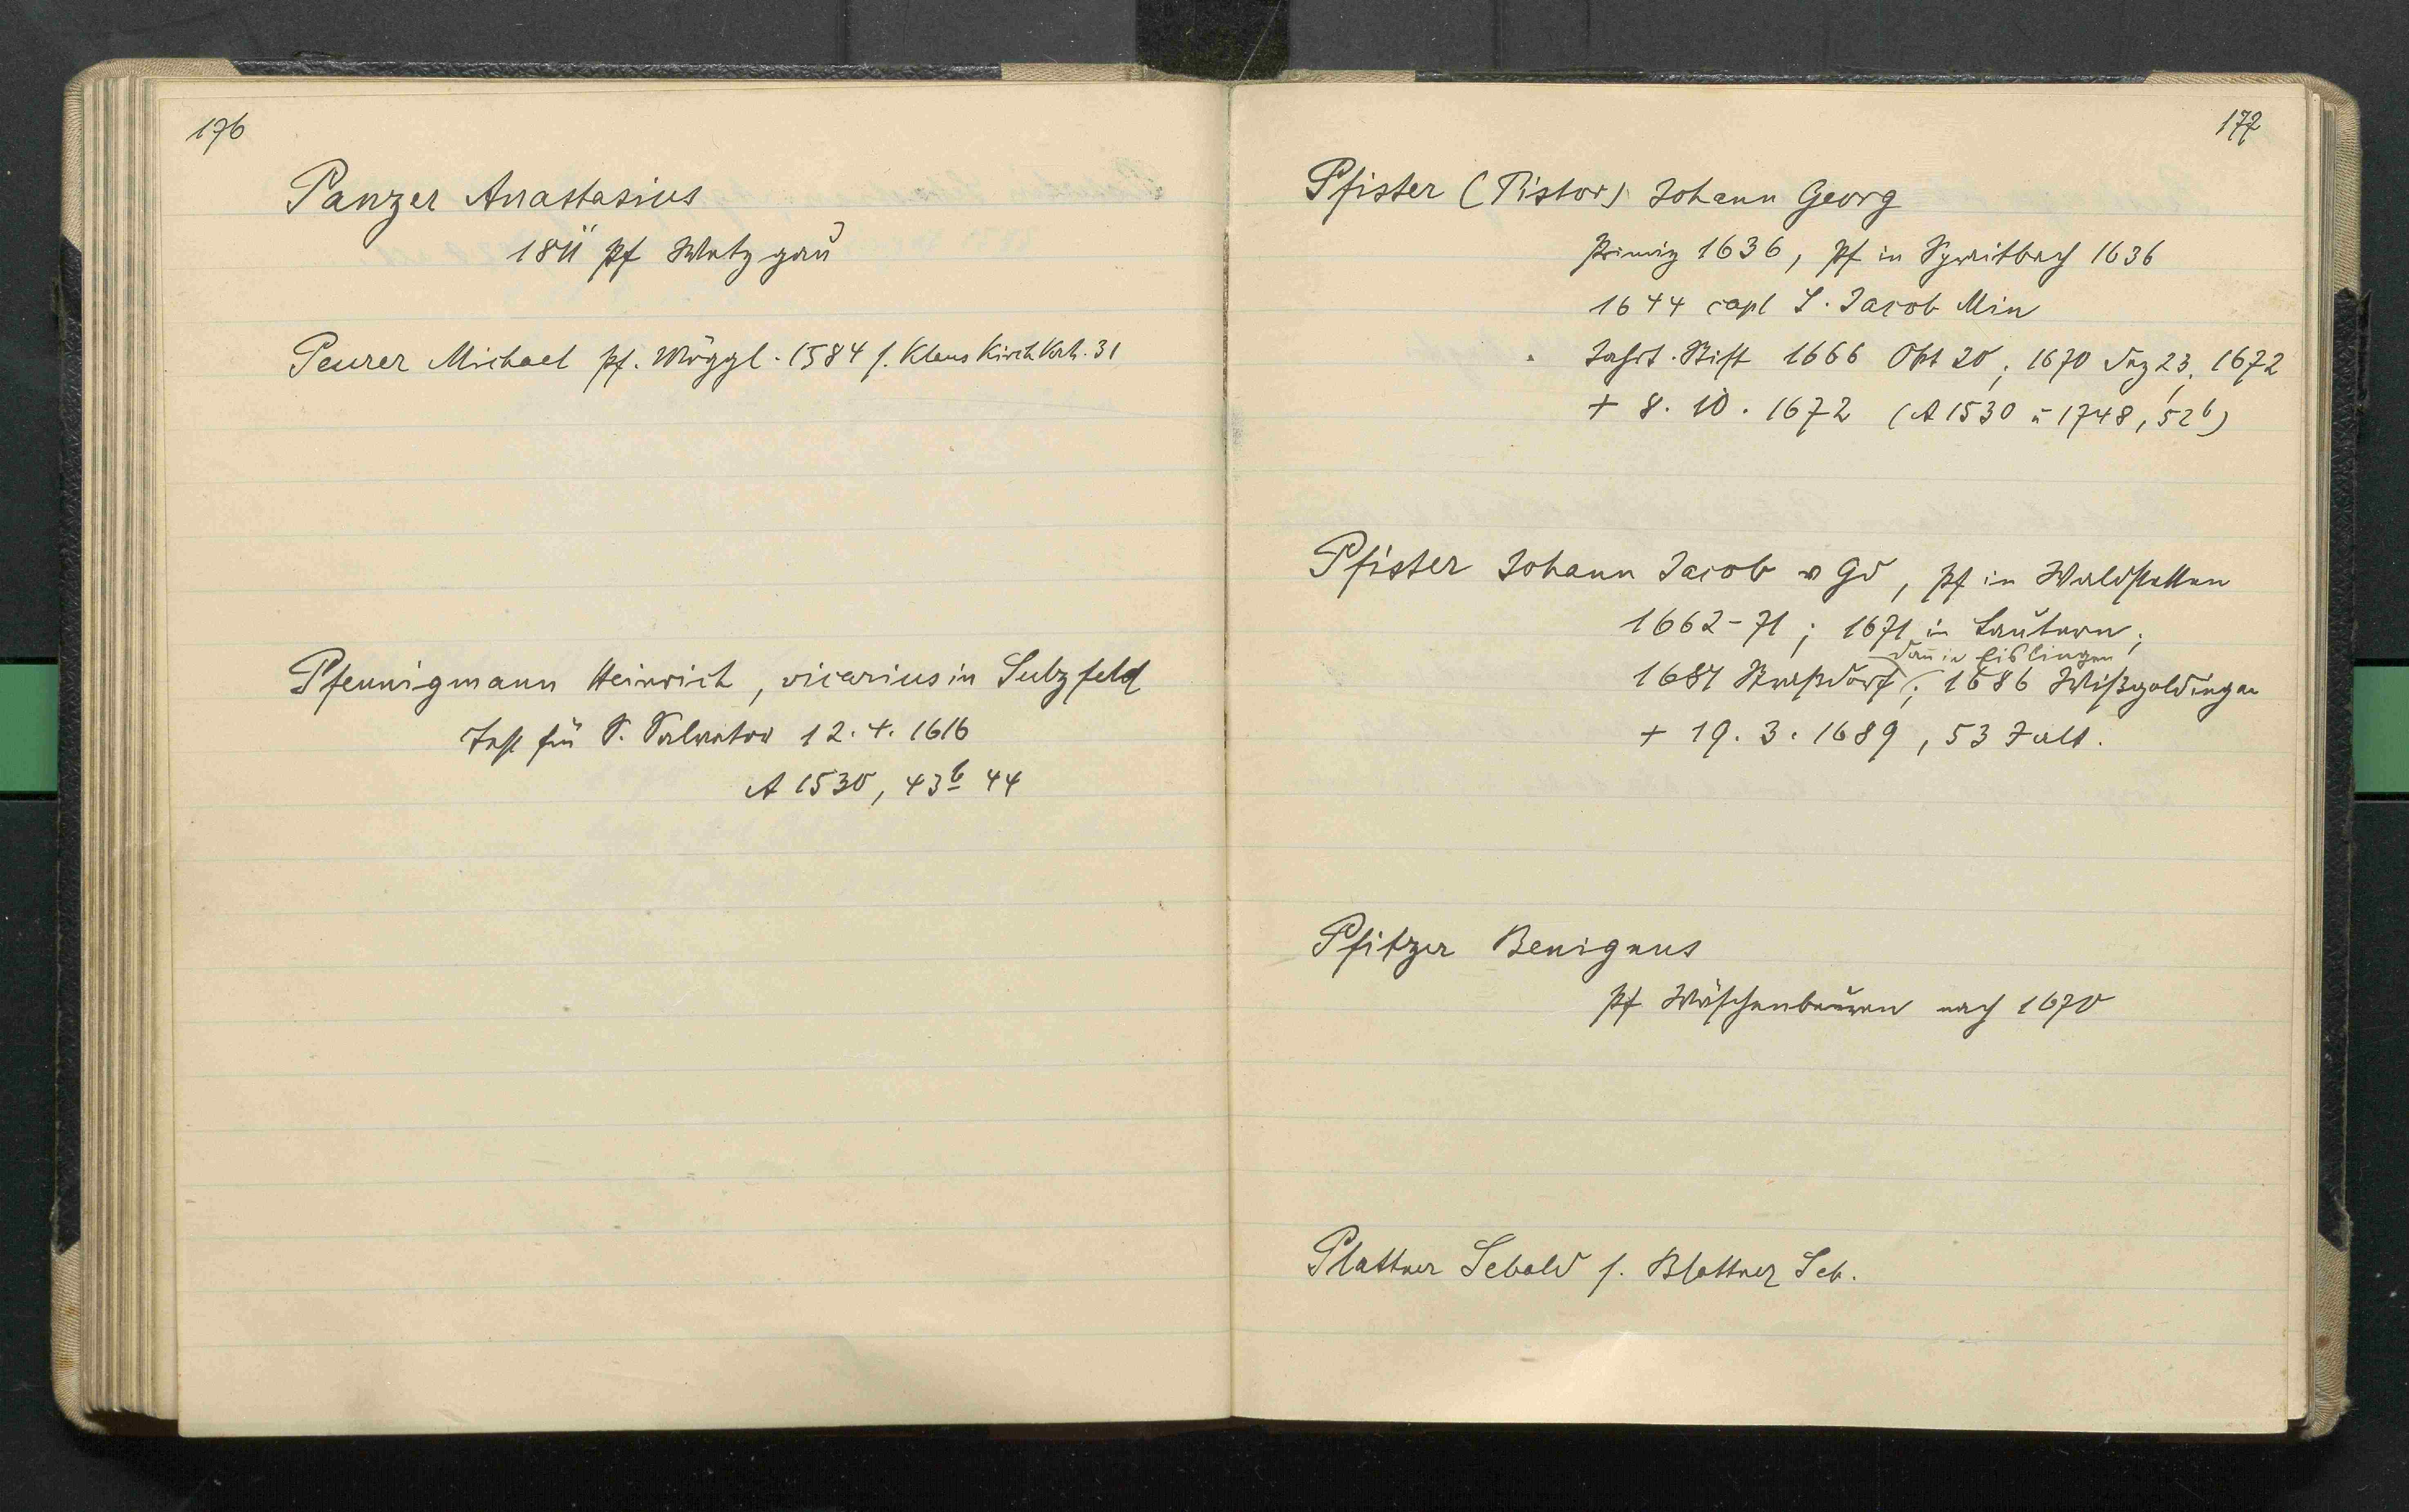 176
Panzer Anastasius
1811 Pf Wetzgau
Peurer Michael Pf. Möggl. 1584 s. Klaus Kirch Kath. 31
Pfennigmann Heinrich, vicarius in Sulzfeld
Test für S. Salvator 12. 4. 1616
A 1530, 43b 44
177
Pfister (Pistor) Johann Georg
Primiz 1636, Pf in Spraitbach 1636
1644 capl S. Jacob Min
Jahrt. Stift 1666 Okt 20; 1670 Dez 23, 1672
+ 8. 10. 1672 (A 1530 u 1748, 52b)
Pfister Johann Jacob v Gd, Pf in Waldstetten
1662-71; 1671 in Lautern;
dan in Eislingen
1681 Straßdorf; 1686 Wißgoldingen
+ 19. 3. 1689, 53 J alt.
Pfitzer Benignus
Pf Wäschenbeuren nach 1670
Plattner Sebald s. Blattner Seb.